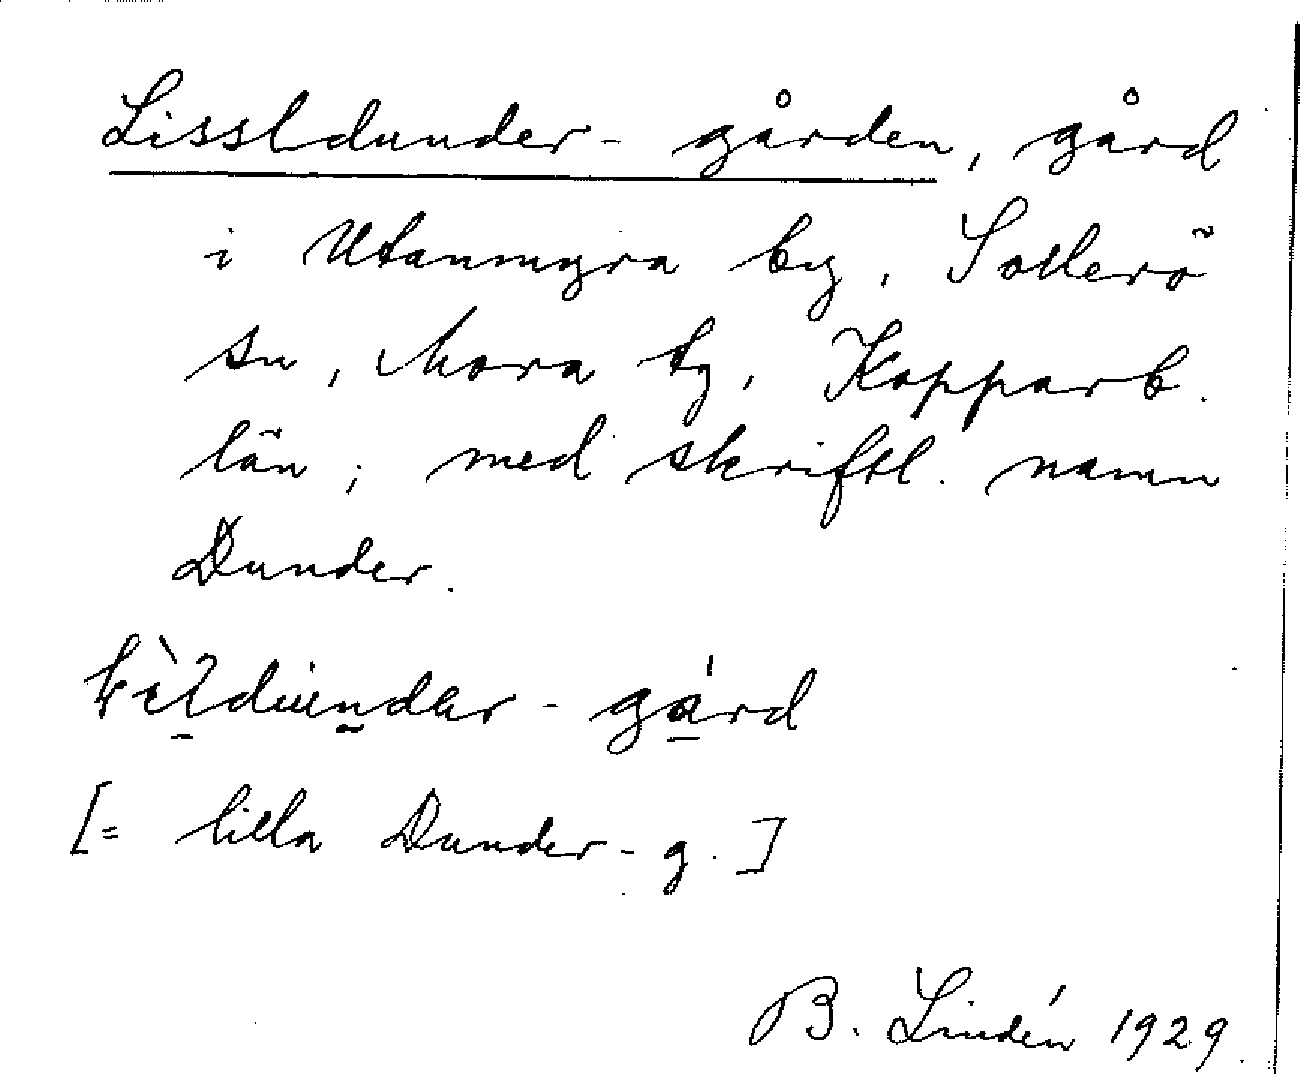 Lissldunder-gården, gård
i Utanmyra by, Sollerö
sn, Mora tg, Kopparb.
län; med skriftl. namn
Dunder.
-gård
[= lilla Dunder-g.]
B. Lindén 1929.